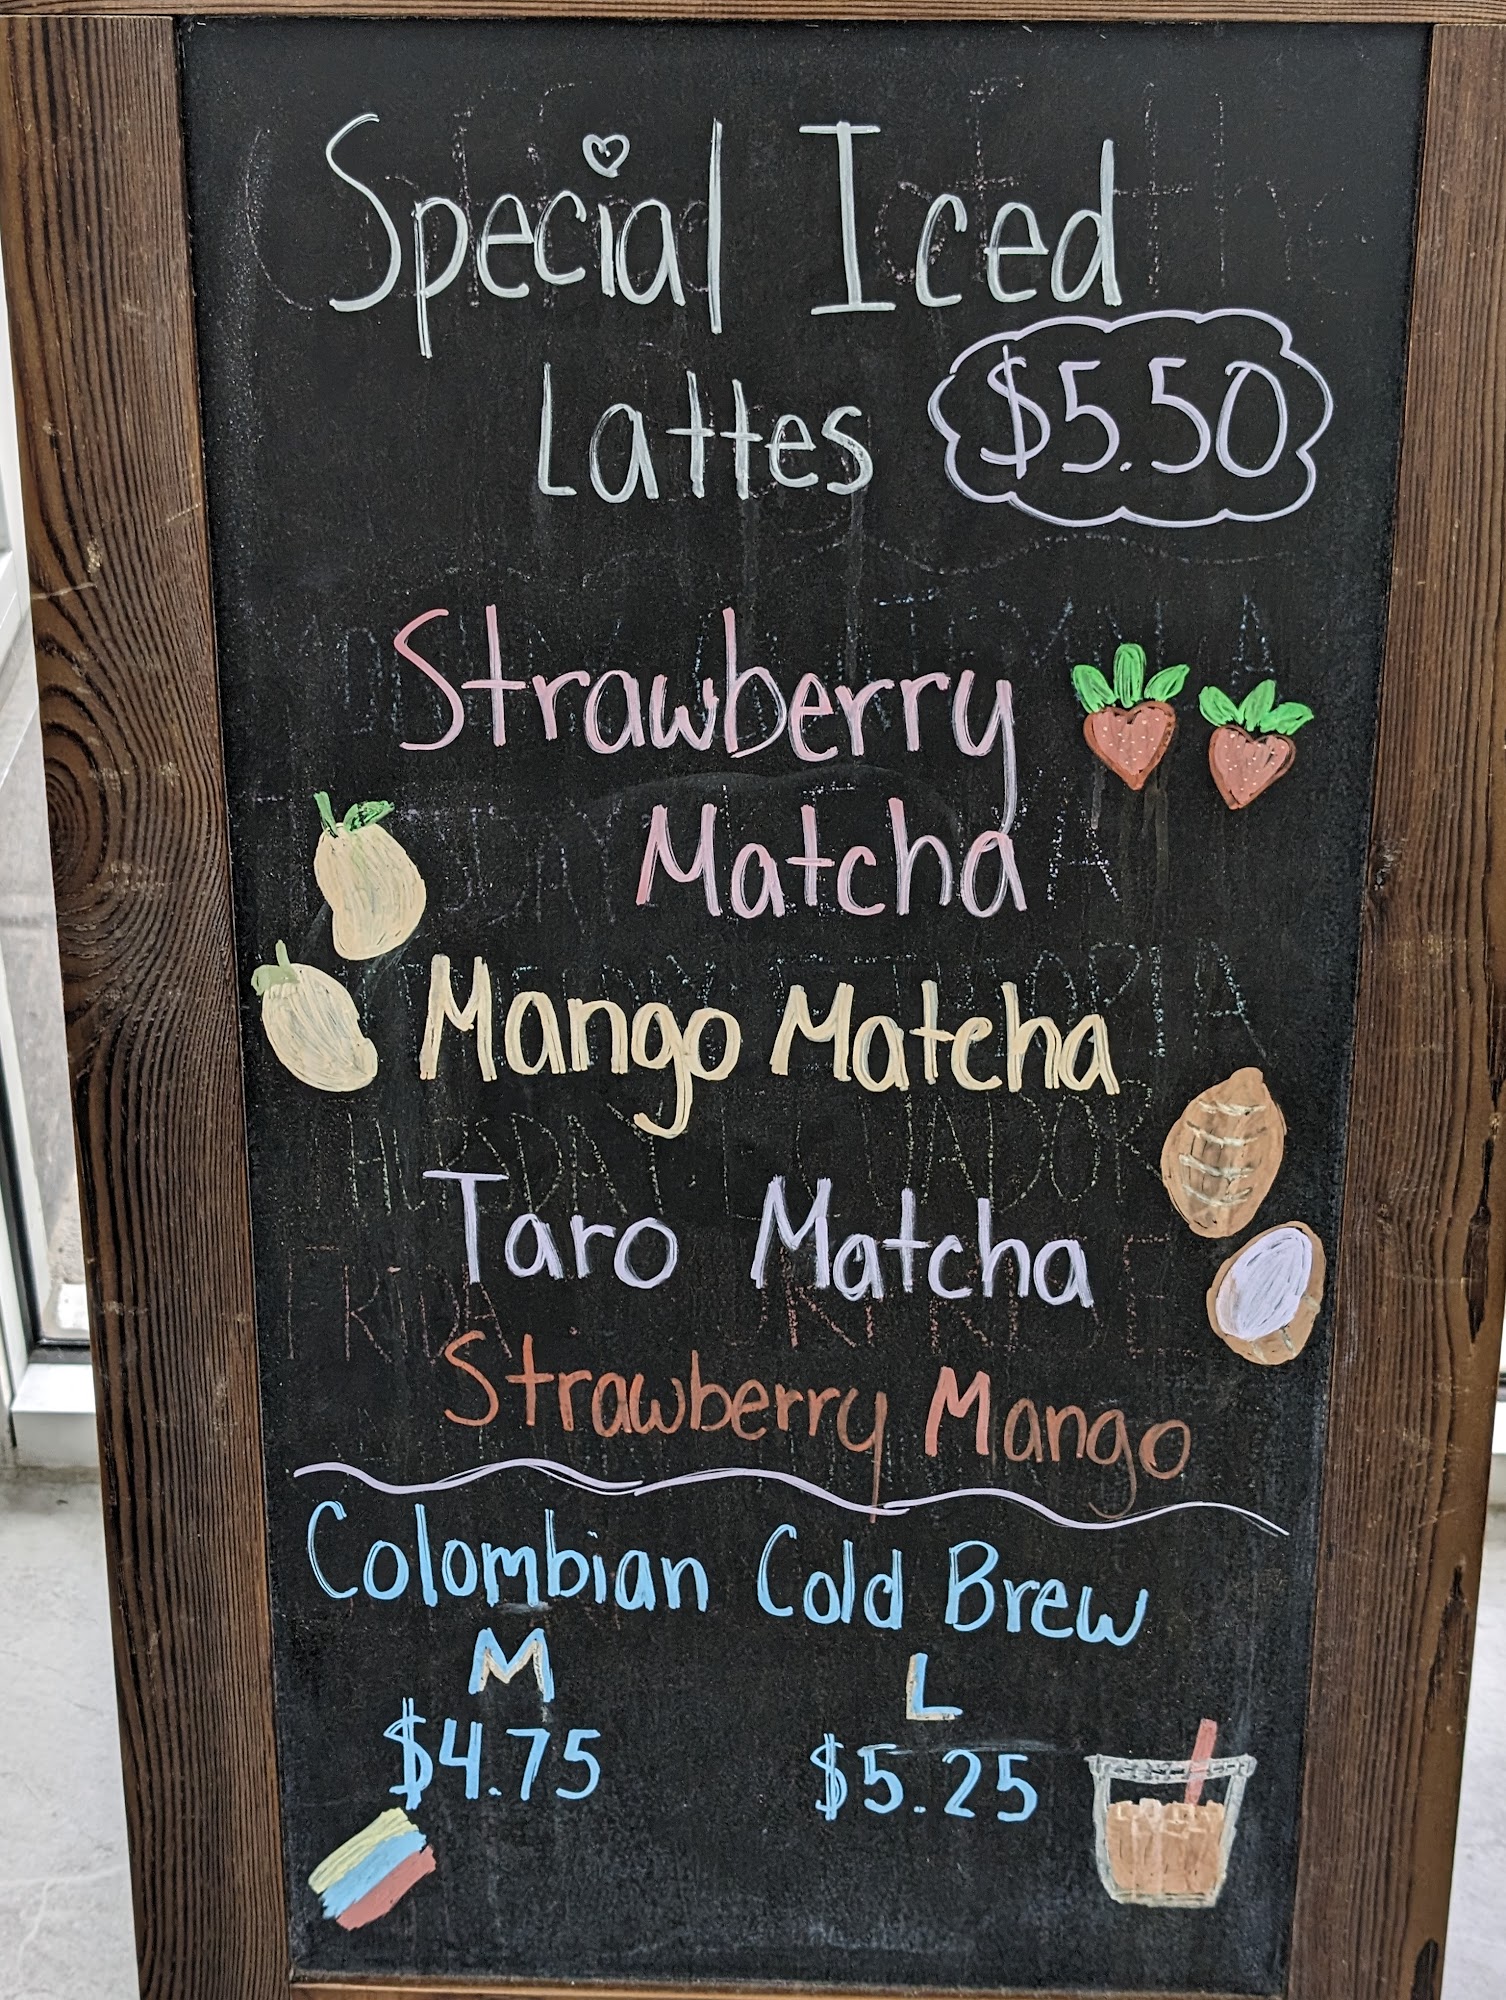 Special Iced
Lattes $5.50
Strawberry
Matcha
Mango Matcha
Taro Matcha
Strawberry Mango
Colombian Cold Brew
M L
$4.75 $5.25